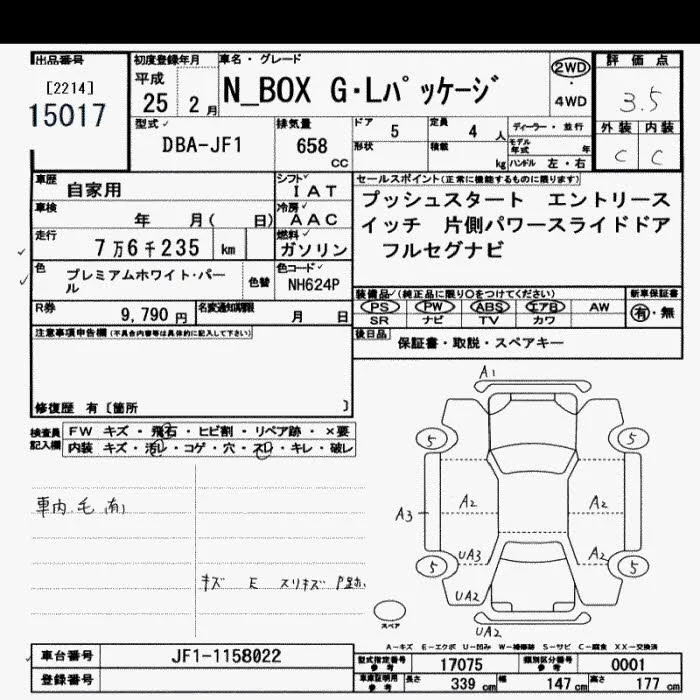 出品番号
[2214]
15017
初度登録年月
平成
25 2月
車名・グレード
N_BOX G・Lパッケージ
2WD
・
4WD
評価点
3.5
外装 内装
C C
型式
DBA-JF1
排気量
658
CC
ドア
5
定員
4 人
ディーラー・並行
形状
積載
kg
モデル年式 年
ハンドル 左・右
車歴
自家用
シフト
IAT
車検
年 月( 日)
冷房
AAC
走行
7万6千235 km
燃料
ガソリン
色
プレミアムホワイト・パール
色替
色コード
NH624P
R券
9,790 円
名変通知期限
月 日
セールスポイント(正常に機能するものに限ります)
プッシュスタート エントリース
イッチ 片側パワースライドドア
フルセグナビ
装備品(純正品に限り○をつけてください)
PS PW ABS エアB AW
SR ナビ TV カワ
新車保証書
有・無
後日品
保証書・取説・スペアキー
注意事項申告欄(不具合内容等は具体的に記入して下さい)
修復歴 有〔箇所 〕
検査員記入欄
FW キズ・飛石・ヒビ割・リペア跡・×要
内装 キズ・汚レ・コゲ・穴・スレ・キレ・破レ
車内毛有
キズ E スリキズ
A1
5 5
A3 A2 A2
UA3 A2
5 5
UA2
UA2
スペア
A-キズ E-エクボ U-凹み W-補修跡 S-サビ C-腐食 XX-交換済
車台番号
JF1-1158022
登録番号
型式指定番号
参考
17075
類別区分番号
参考
0001
車庫証明用
参考
長さ 339 cm 幅 147 cm 高さ 177 cm